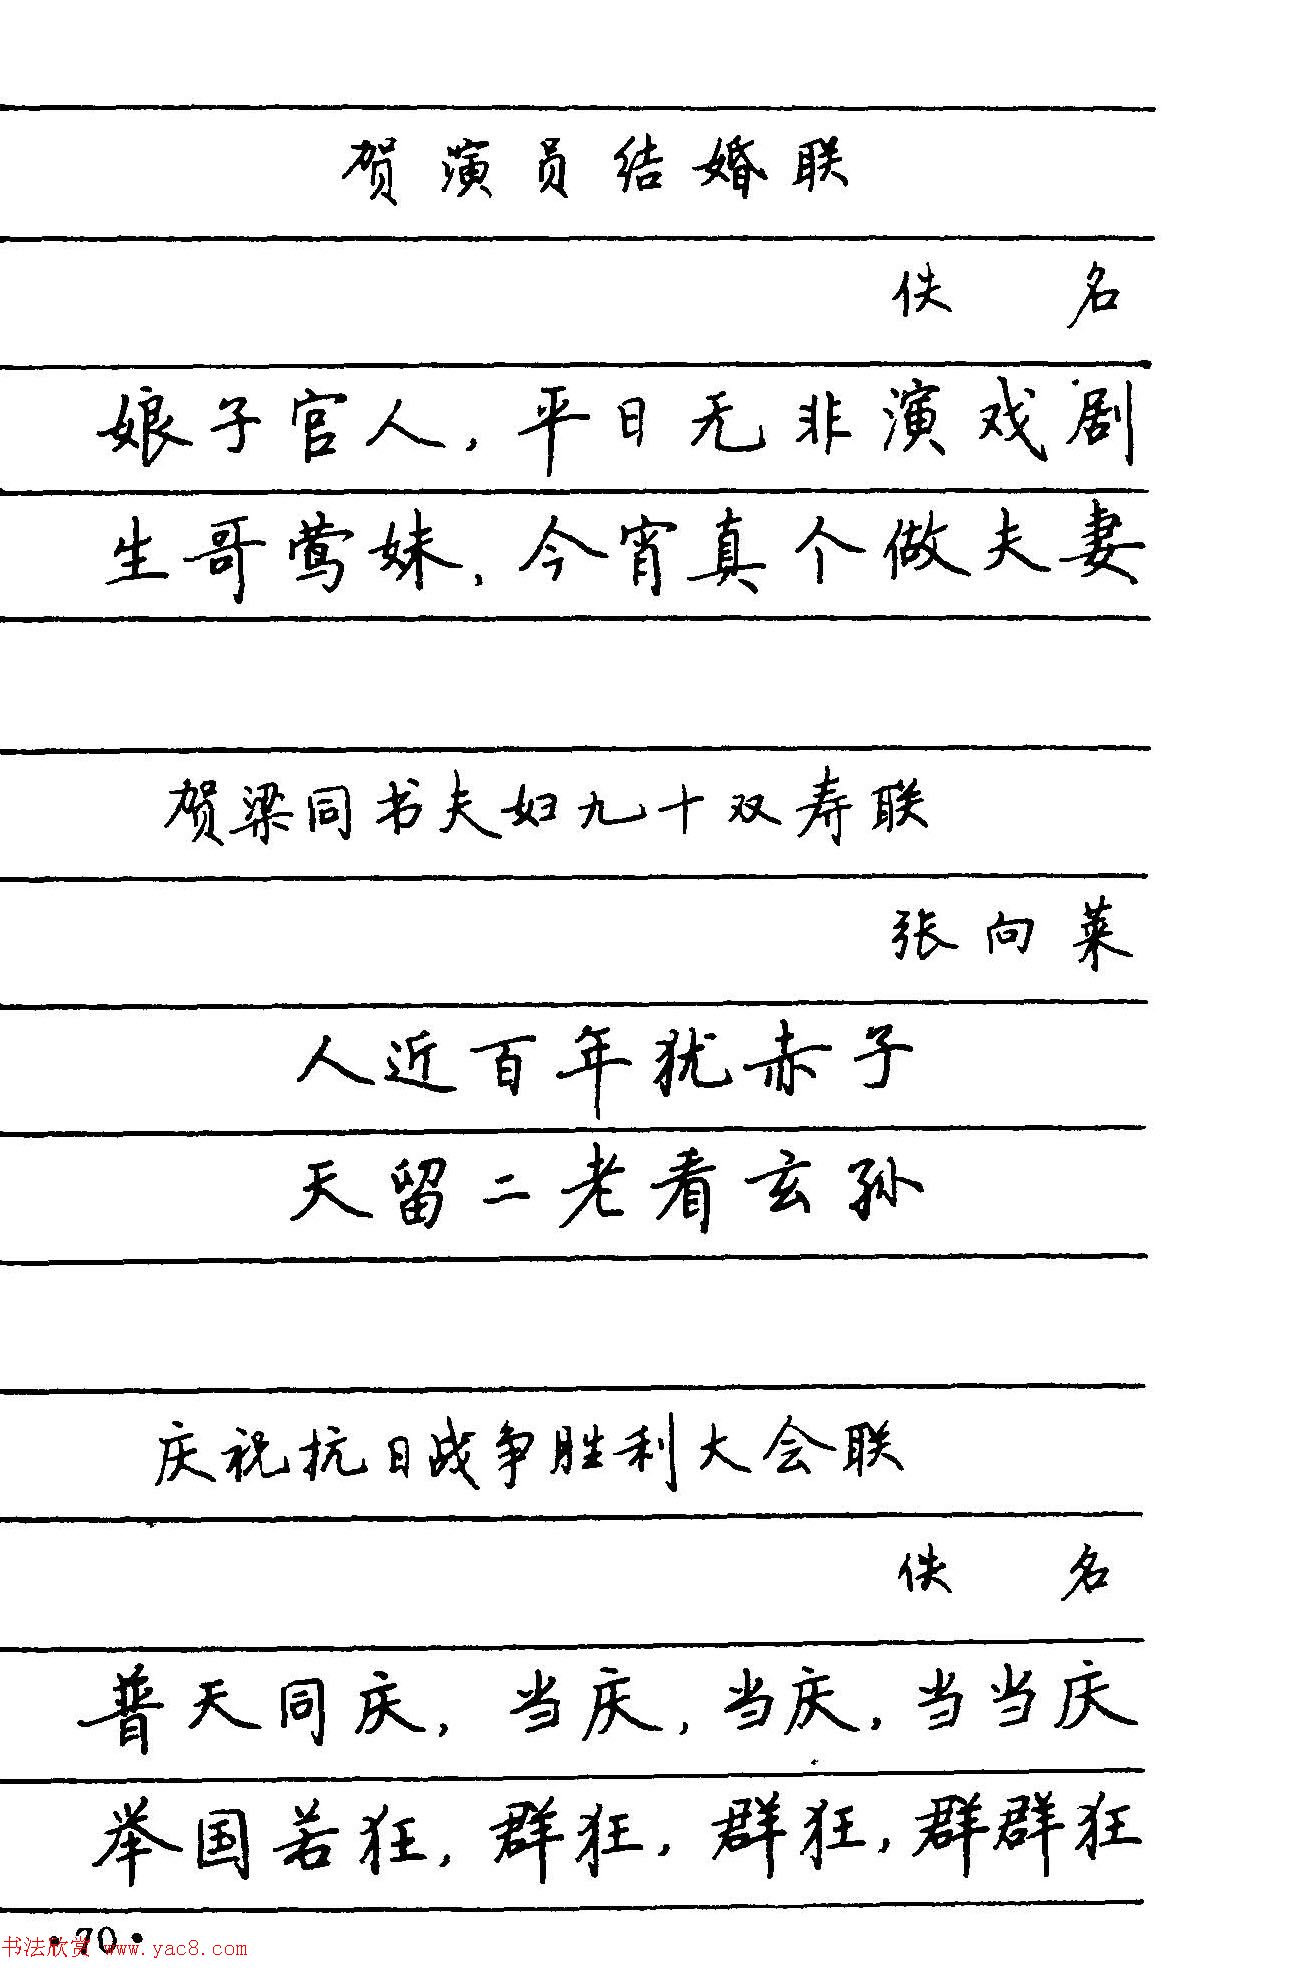 贺演员结婚联
佚名
娘子官人，平日无非演戏剧
生哥莺妹，今宵真个做夫妻
贺梁同书夫妇九十双寿联
张向莱
人近百年犹赤子
天留二老看玄孙
庆祝抗日战争胜利大会联
佚名
普天同庆，当庆，当庆，当当庆
举国若狂，群狂，群狂，群群狂
·70·
书法欣赏 www.yac8.com